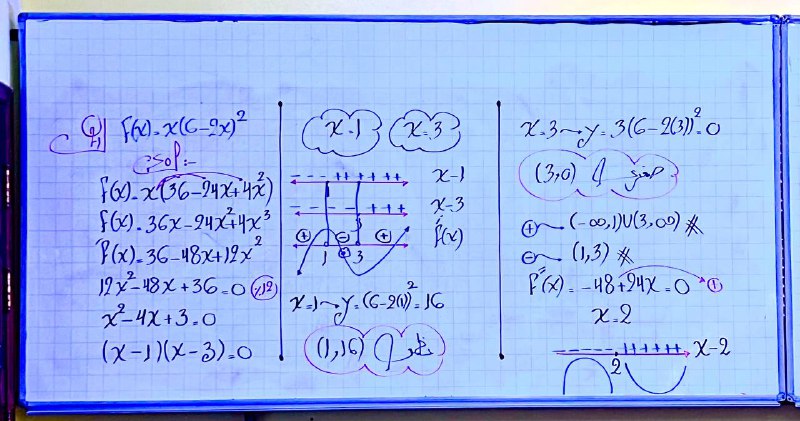 Q1 f(x)=x(6-2x)²
sol:-
f(x)=x(36-24x+4x²)
f(x)=36x-24x²+4x³
f́(x)=36-48x+12x²
12x²-48x+36=0 ÷12
x²-4x+3=0
(x-1)(x-3)=0
x=1 x=3
- - - - + + + + + + + x-1
- - - - - - + + + + x-3
⊕ ⊖ ⊕ f́(x)
1 3
x=1 → y=(6-2(1))²=16
(1,16)
x=3 → y=3(6-2(3))²=0
(3,0)
⊕ → (-∞,1)∪(3,∞)
⊖ → (1,3)
f̋(x)=-48+24x=0
x=2
- - - - - - + + + + + x-2
2